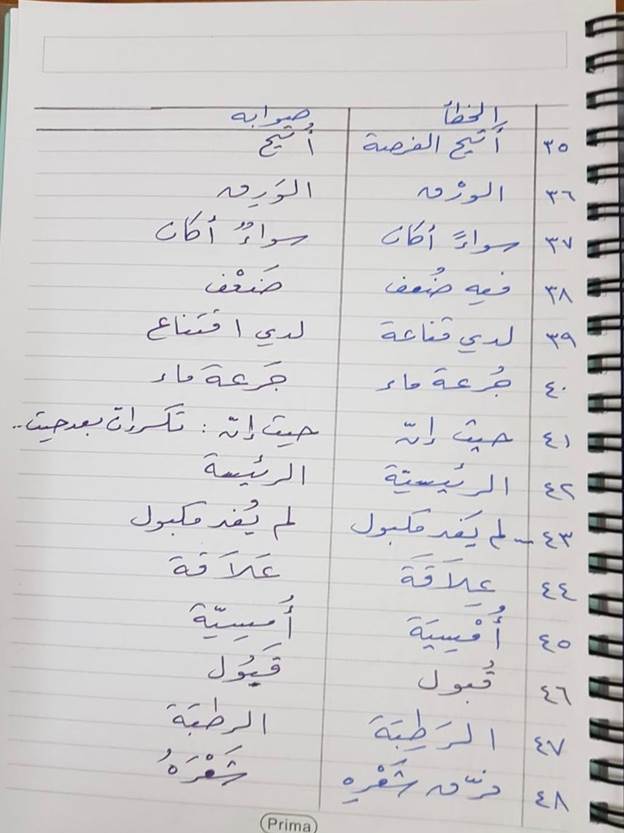 الخطأ صوابه
٣٥ أَتيح الفرصة أُتيح
٣٦ الورْق الوَرِق
٣٧ سواءً أكان سواءٌ أكان
٣٨ فيه ضُعف ضَعْف
٣٩ لدي قناعة لدي اقتناع
٤٠ جُرعة ماء جَرعة ماء
٤١ حيث إنّ حيث إنّ : تكسر إنّ بعد حيث..
٤٢ الرئيسيّة الرئيسة
٤٣ لم يَفد مكبول لم يُفد مكبول
٤٤ عِلاَقَة عَلاَقة
٤٥ أُمْسِيَة أُمسِيّة
٤٦ قُبول قَبُول
٤٧ الرَطِبَة الرطبَة
٤٨ فرّق شَعْرِهِ شَعْرَهُ
Prima